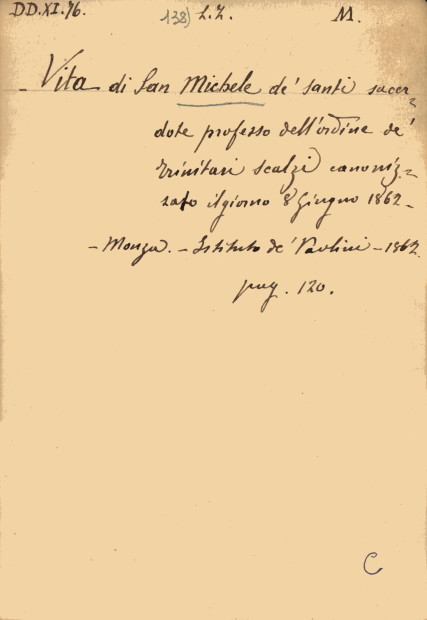 DD.XI.76. 138) L.L. M.
- Vita di San Michele de' santi sacer=
dote professo dell'ordine de'
trinitari scalzi canoniz=
zato il giorno 8 Giugno 1862 -
- Monza. - Istituto de' Paolini - 1862.
pag. 120.
C